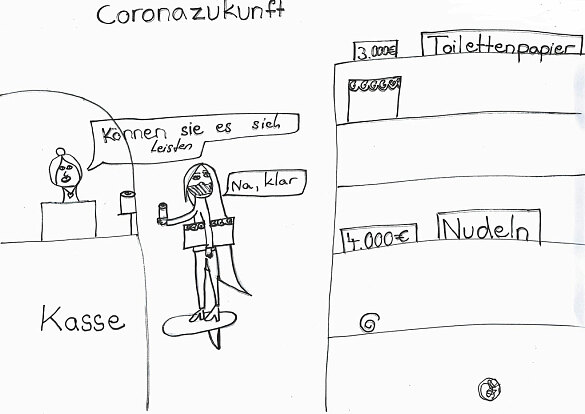 Coronazukunft
3.000€
Toilettenpapier
Können sie es sich
leisten
Na, klar
4.000€
Nudeln
Kasse